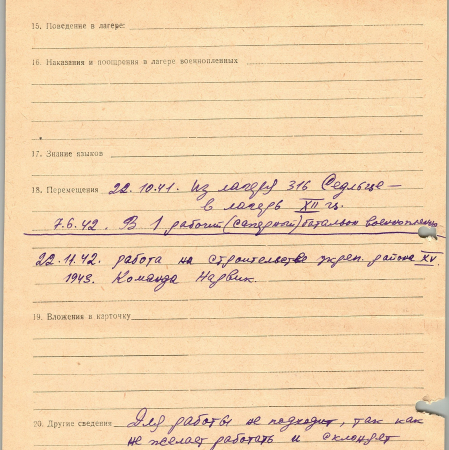 15. Поведение в лагере:
16. Наказания и поощрения в лагере военнопленных
17. Знание языков
18. Перемещения 22.10.41. Из лагеря 316 Седльце –
в лагерь XII гц.
7.6.42. В 1 рабочий (саперный) батальон военнопленн
22.11.42. работа на строительстве укреп. района XV.
1943. Команда Нарвик.
19. Вложения в карточку
20. Другие сведения Для работы не подходит, так как
не желает работать и склоняет